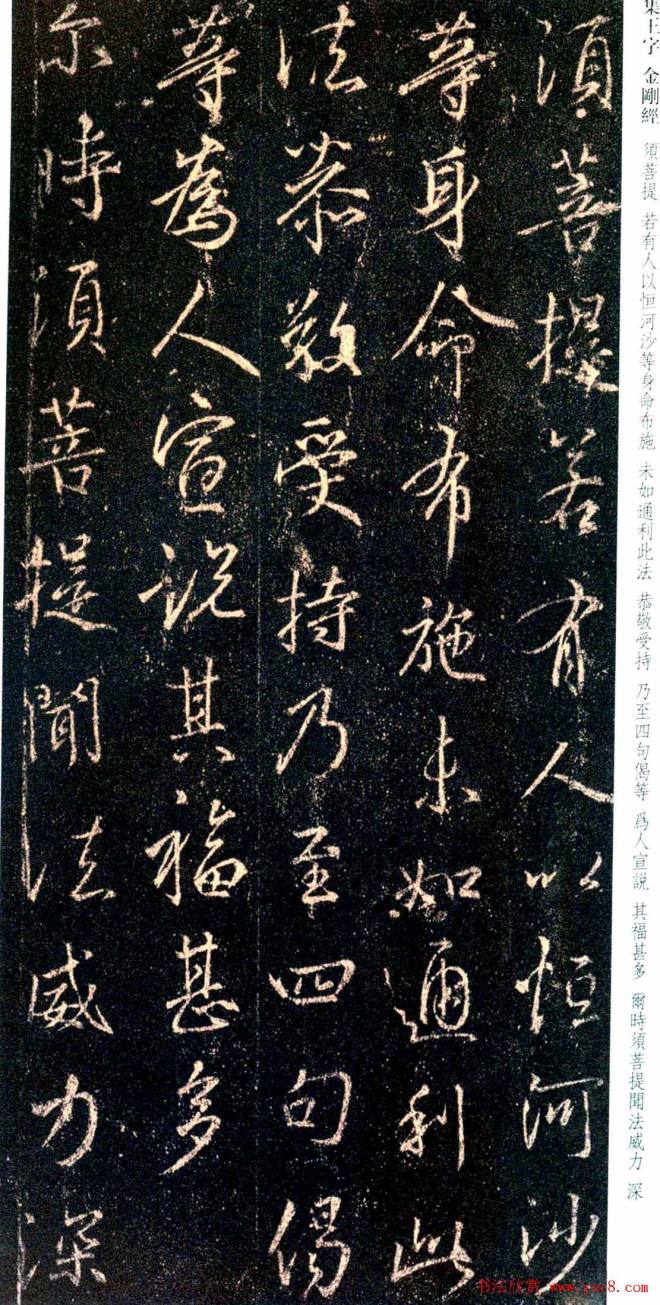 集王字 金剛經 須菩提 若有人以恒河沙等身命布施 未如通利此法 恭敬受持 乃至四句偈等 爲人宣説 其福甚多 爾時須菩提聞法威力 深
須菩提若有人以恒河沙
等身命布施未如通利此
法恭敬受持乃至四句偈
等為人宣說其福甚多
尔時須菩提聞法威力深
书法欣赏 www.yac8.com